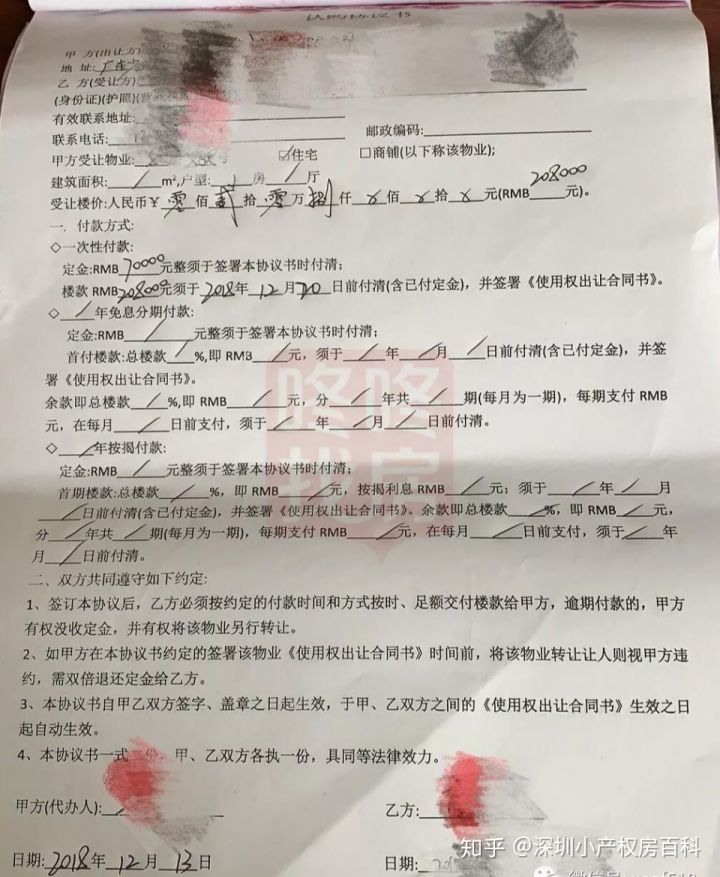 认购协议书
甲 方(出让方)
地 址:广东
乙 方(受让方):
(身份证)(护照)
有效联系地址:
联系电话: 邮政编码:
甲方受让物业: ☑住宅 □商铺(以下称该物业);
建筑面积: / m²,户型: 1 房 / 厅
受让楼价:人民币¥ 零 佰 贰 拾 零 万 捌 仟 x 佰 x 拾 x 元(RMB 208000 元)。
一. 付款方式:
◇一次性付款:
定金:RMB 70000 元整须于签署本协议书时付清;
楼款 RMB 208000 元须于 2018 年 12 月 20 日前付清(含已付定金),并签署《使用权出让合同书》。
◇ / 年免息分期付款:
定金:RMB / 元整须于签署本协议书时付清;
首付楼款:总楼款 / %,即 RMB / 元,须于 / 年 / 月 / 日前付清(含已付定金),并签
署《使用权出让合同书》。
余款即总楼款 / %,即 RMB / 元,分 / 年共 / 期(每月为一期),每期支付 RMB
元,在每月 / 日前支付,须于 / 年 / 月 / 日前付清。
◇ / 年按揭付款:
定金:RMB / 元整须于签署本协议书时付清;
首期楼款:总楼款 / %,即 RMB / 元,按揭利息 RMB / 元;须于 / 年 / 月
/ 日前付清(含已付定金),并签署《使用权出让合同书》。余款即总楼款 / %,即 RMB / 元,
分 / 年共 / 期(每月为一期),每期支付 RMB / 元,在每月 / 日前支付,须于 / 年
月 / 日前付清。
二、双方共同遵守如下约定:
1、签订本协议后,乙方必须按约定的付款时间和方式按时、足额交付楼款给甲方,逾期付款的,甲方
有权没收定金,并有权将该物业另行转让。
2、如甲方在本协议书约定的签署该物业《使用权出让合同书》时间前,将该物业转让让人则视甲方违
约,需双倍退还定金给乙方。
3、本协议书自甲乙双方签字、盖章之日起生效,于甲、乙双方之间的《使用权出让合同书》生效之日
起自动生效。
4、本协议书一式 份,甲、乙双方各执一份,具同等法律效力。
甲方(代办人): 乙方:
日期: 2018 年 12 月 13 日 日期: 20
咚咚找房
知乎 @深圳小产权房百科